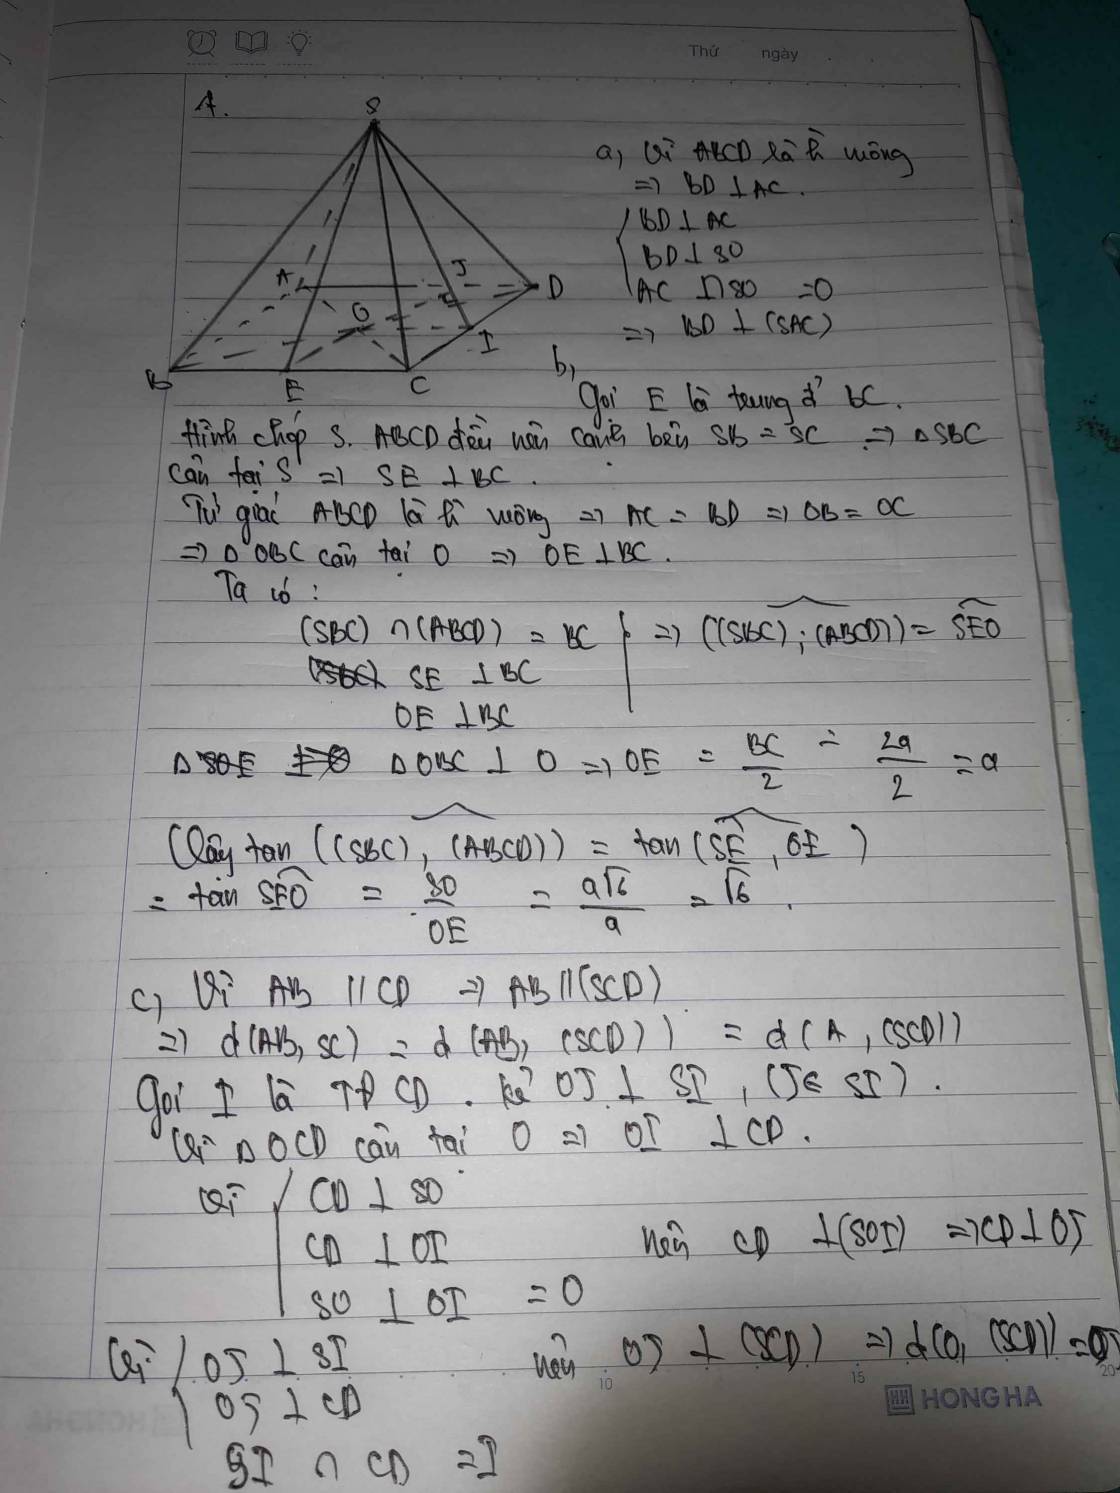 Thứ ngày
A.
S
A
J
D
O
I
B
E
C
a, Vì ABCD là h̀ vuông
=> BD ⊥ AC.
BD ⊥ AC
BD ⊥ SO
AC ∩ SO = O
=> BD ⊥ (SAC)
b,
Gọi E là trung đ' BC.
Hình chóp S.ABCD đều nên cạnh bên SB = SC => Δ SBC
cân tại S => SE ⊥ BC.
Tứ giác ABCD là h̀ vuông => AC = BD => OB = OC
=> Δ OBC cân tại O => OE ⊥ BC.
Ta có:
(SBC) ∩ (ABCD) = BC => ((SBC); (ABCD)) = SEO
SE ⊥ BC
OE ⊥ BC
Δ OBC ⊥ O => OE = BC/2 = 2a/2 = a
Vậy tan ((SBC), (ABCD)) = tan (SE, OE)
= tan SEO = SO/OE = a√6/a = √6.
c, Vì AB // CD => AB // (SCD)
=> d(AB, SC) = d(AB, (SCD)) = d(A, (SCD))
Gọi I là TĐ CD. kẻ OJ ⊥ SI, (J ∈ SI).
Vì Δ OCD cân tại O => OI ⊥ CD.
Vì CD ⊥ SO
CD ⊥ OI nên CD ⊥ (SOI) => CD ⊥ OJ
SO ⊥ OI = O
Vì OJ ⊥ SI nên OJ ⊥ (SCD) => d(O, (SCD)) = OJ
OJ ⊥ CD
SI ∩ CD = I
10 15 20
HONG HA